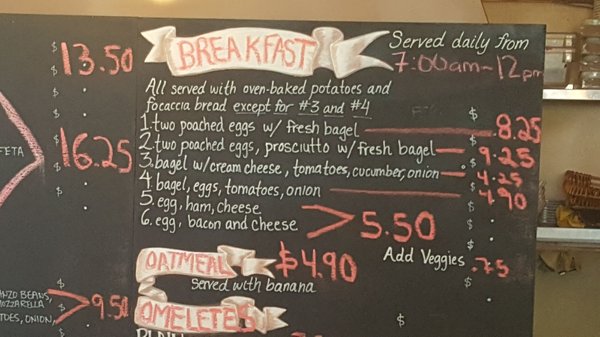 $ 13.50
FETA
$ 16.25
NZO BEANS,
OZZARELLA
TOES, ONION,
$ 9.50
BREAKFAST
Served daily from
7:00am-12pm
All served with oven-baked potatoes and
focaccia bread except for #3 and #4
1. two poached eggs w/ fresh bagel $ 8.25
2. two poached eggs, prosciutto w/ fresh bagel 9.25
3. bagel w/cream cheese, tomatoes, cucumber, onion $ 4.25
4. bagel, eggs, tomatoes, onion $ 4.90
5. egg, ham, cheese
6. egg, bacon and cheese
$ 5.50
Add Veggies .75
OATMEAL $4.90
served with banana
OMELETES
$